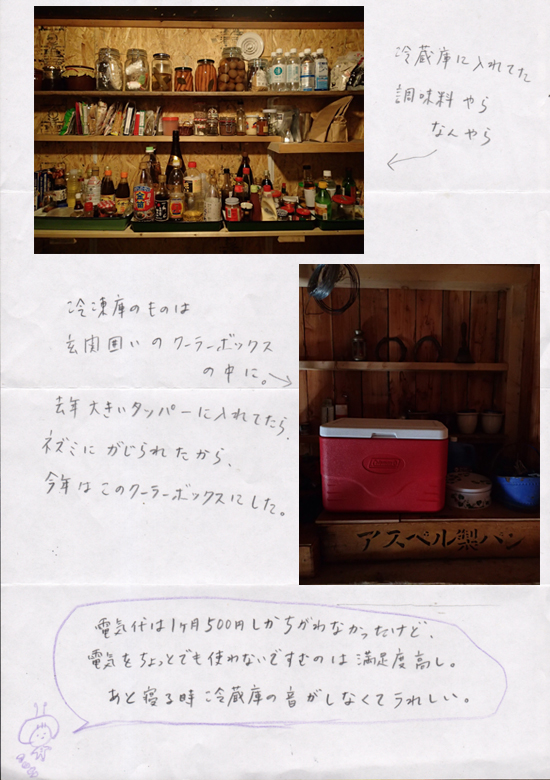 冷蔵庫に入れてた
調味料やら
なんやら
冷凍庫のものは
玄関囲いのクーラーボックス
の中に。
去年大きいタッパーに入れてたら、
ネズミにかじられたから、
今年はこのクーラーボックスにした。
アスベル製パン
電気代は1ヶ月500円しかちがわなかったけど、
電気をちょっとでも使わないですむのは満足度高し。
あと寝る時冷蔵庫の音がしなくてうれしい。